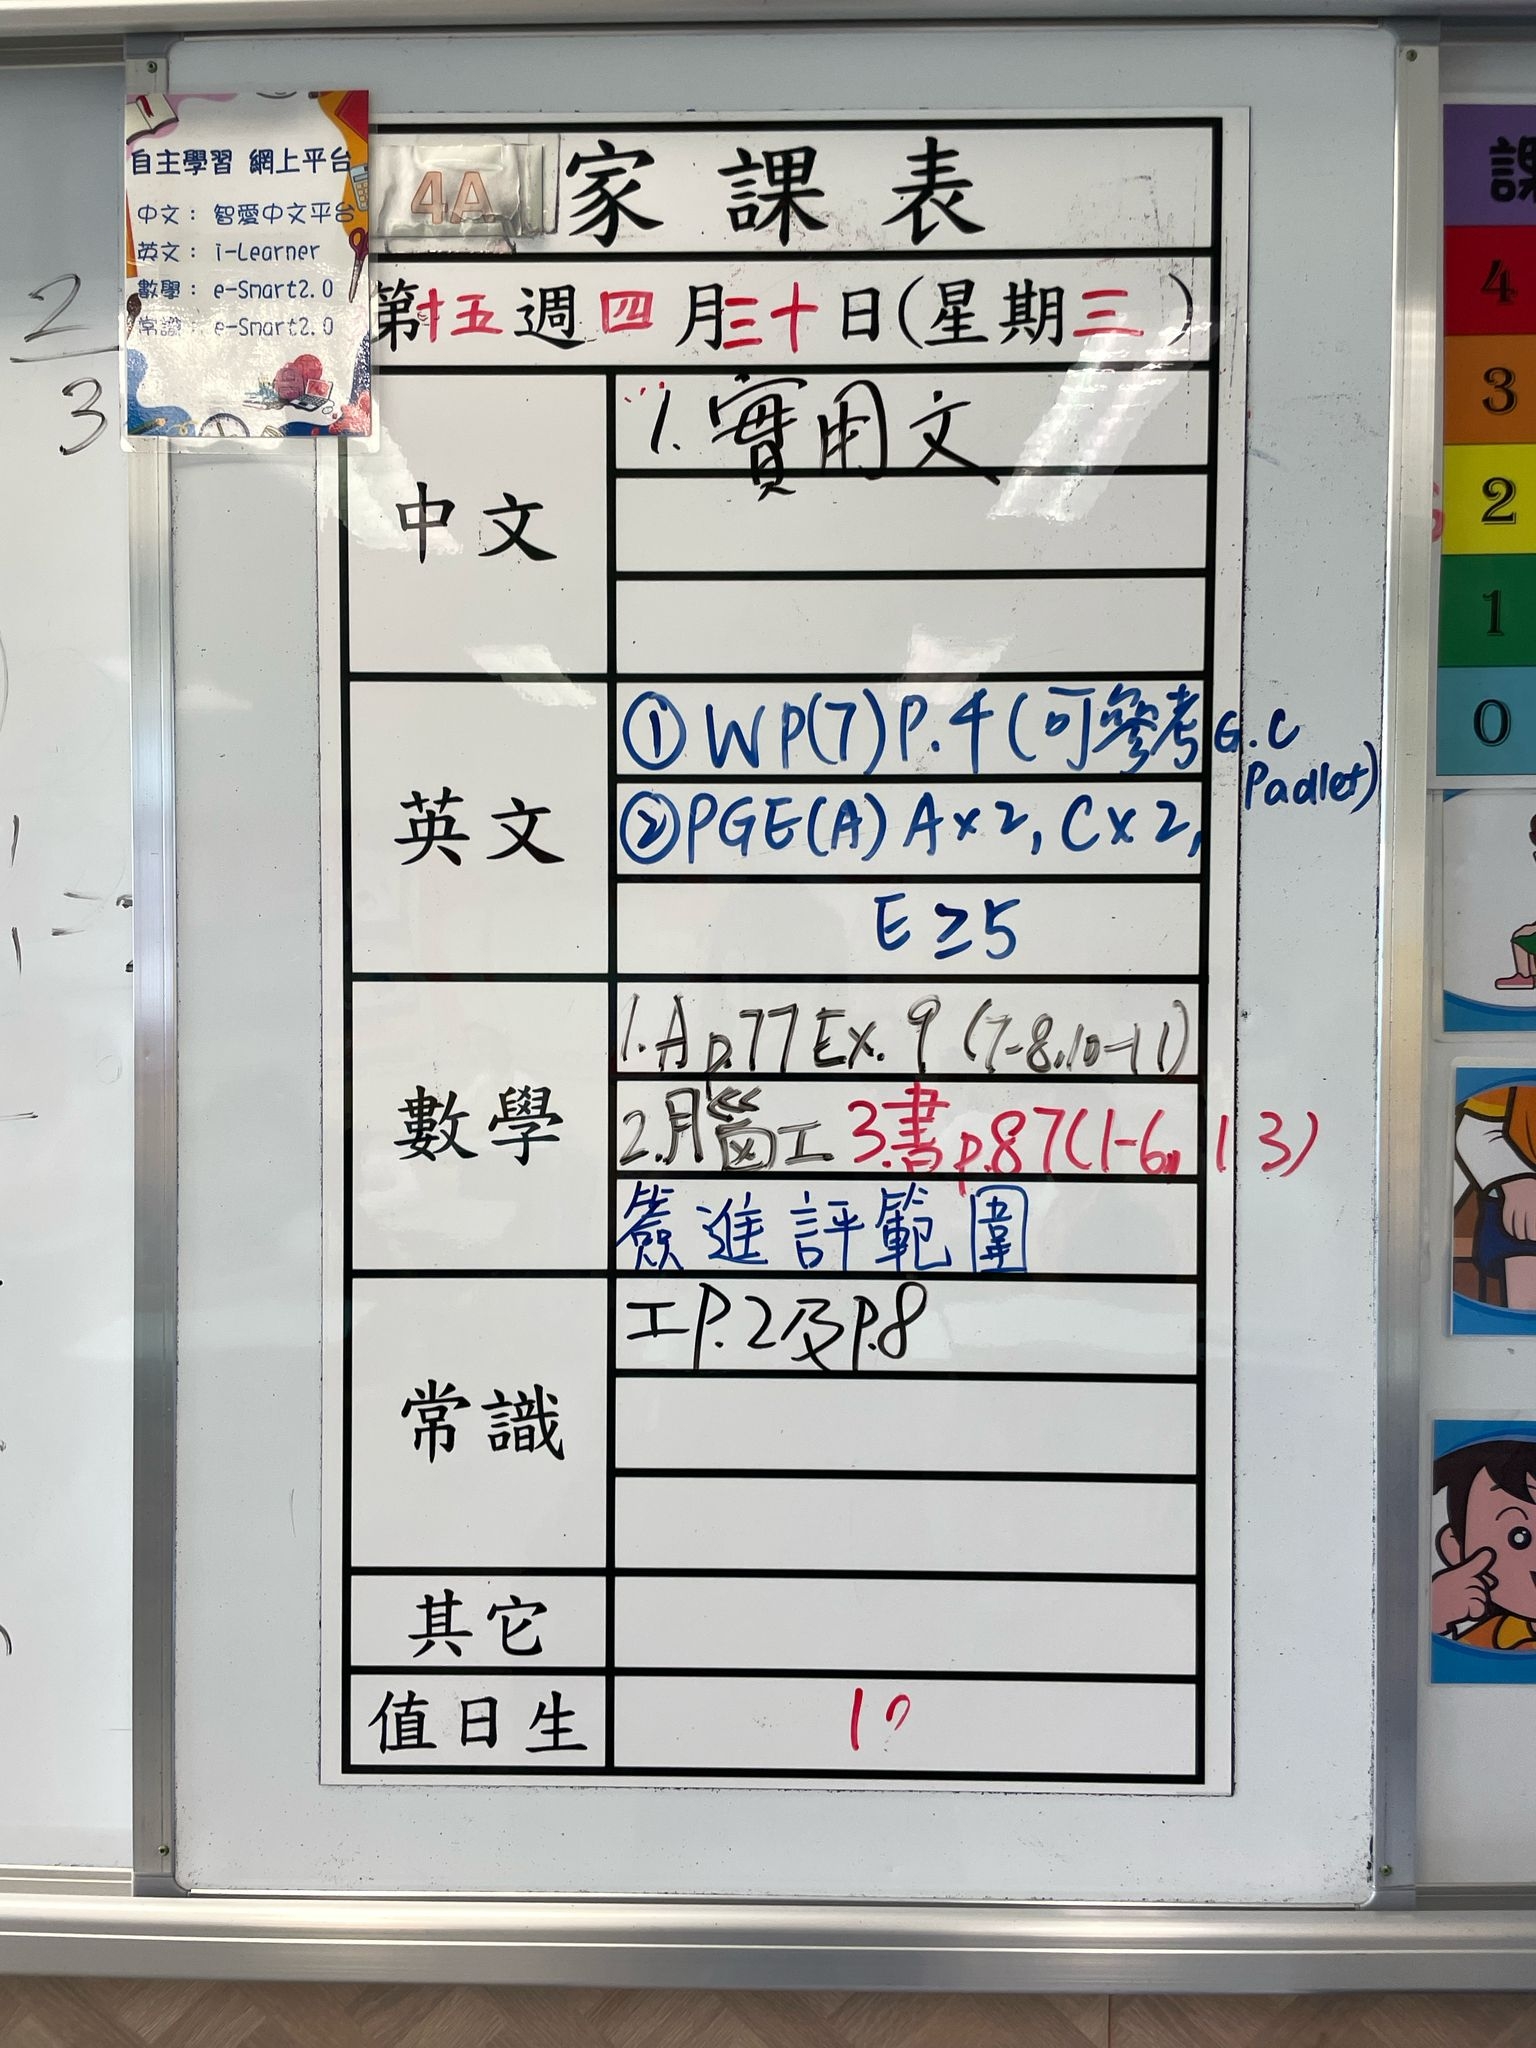 自主學習 網上平台
中文： 智愛中文平台
英文： i-Learner
數學： e-Smart2.0
常識： e-Smart2.0
4A 家課表
第十五週四月三十日(星期三)
中文
1. 實用文
英文
① WP(7) P.4 (可參考 G.C
Padlet)
② PGE(A) A×2, C×2,
E ≥5
數學
1. A p.77 Ex. 9 (7-8,10-11)
2. 腦工 3.書 p.87(1-6, 13)
簽進評範圍
常識
工 P.2及P.8
其它
值日生
課
4
3
2
1
0
2
3